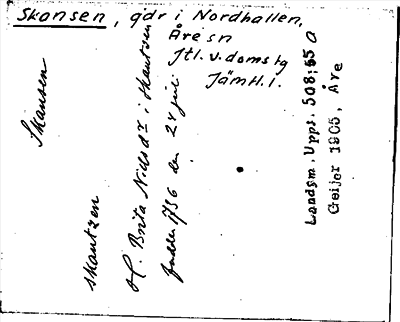 Skansen, gdr i Nordhallen,
Åre sn
Jtl. v. doms tg
Jämtl. l.
Skansen
skantzen
H. Brita Nillsdr i Skantsen
1736 den 24 juli
Landsm. Upps. 508:55 a
Geijer 1905, Åre